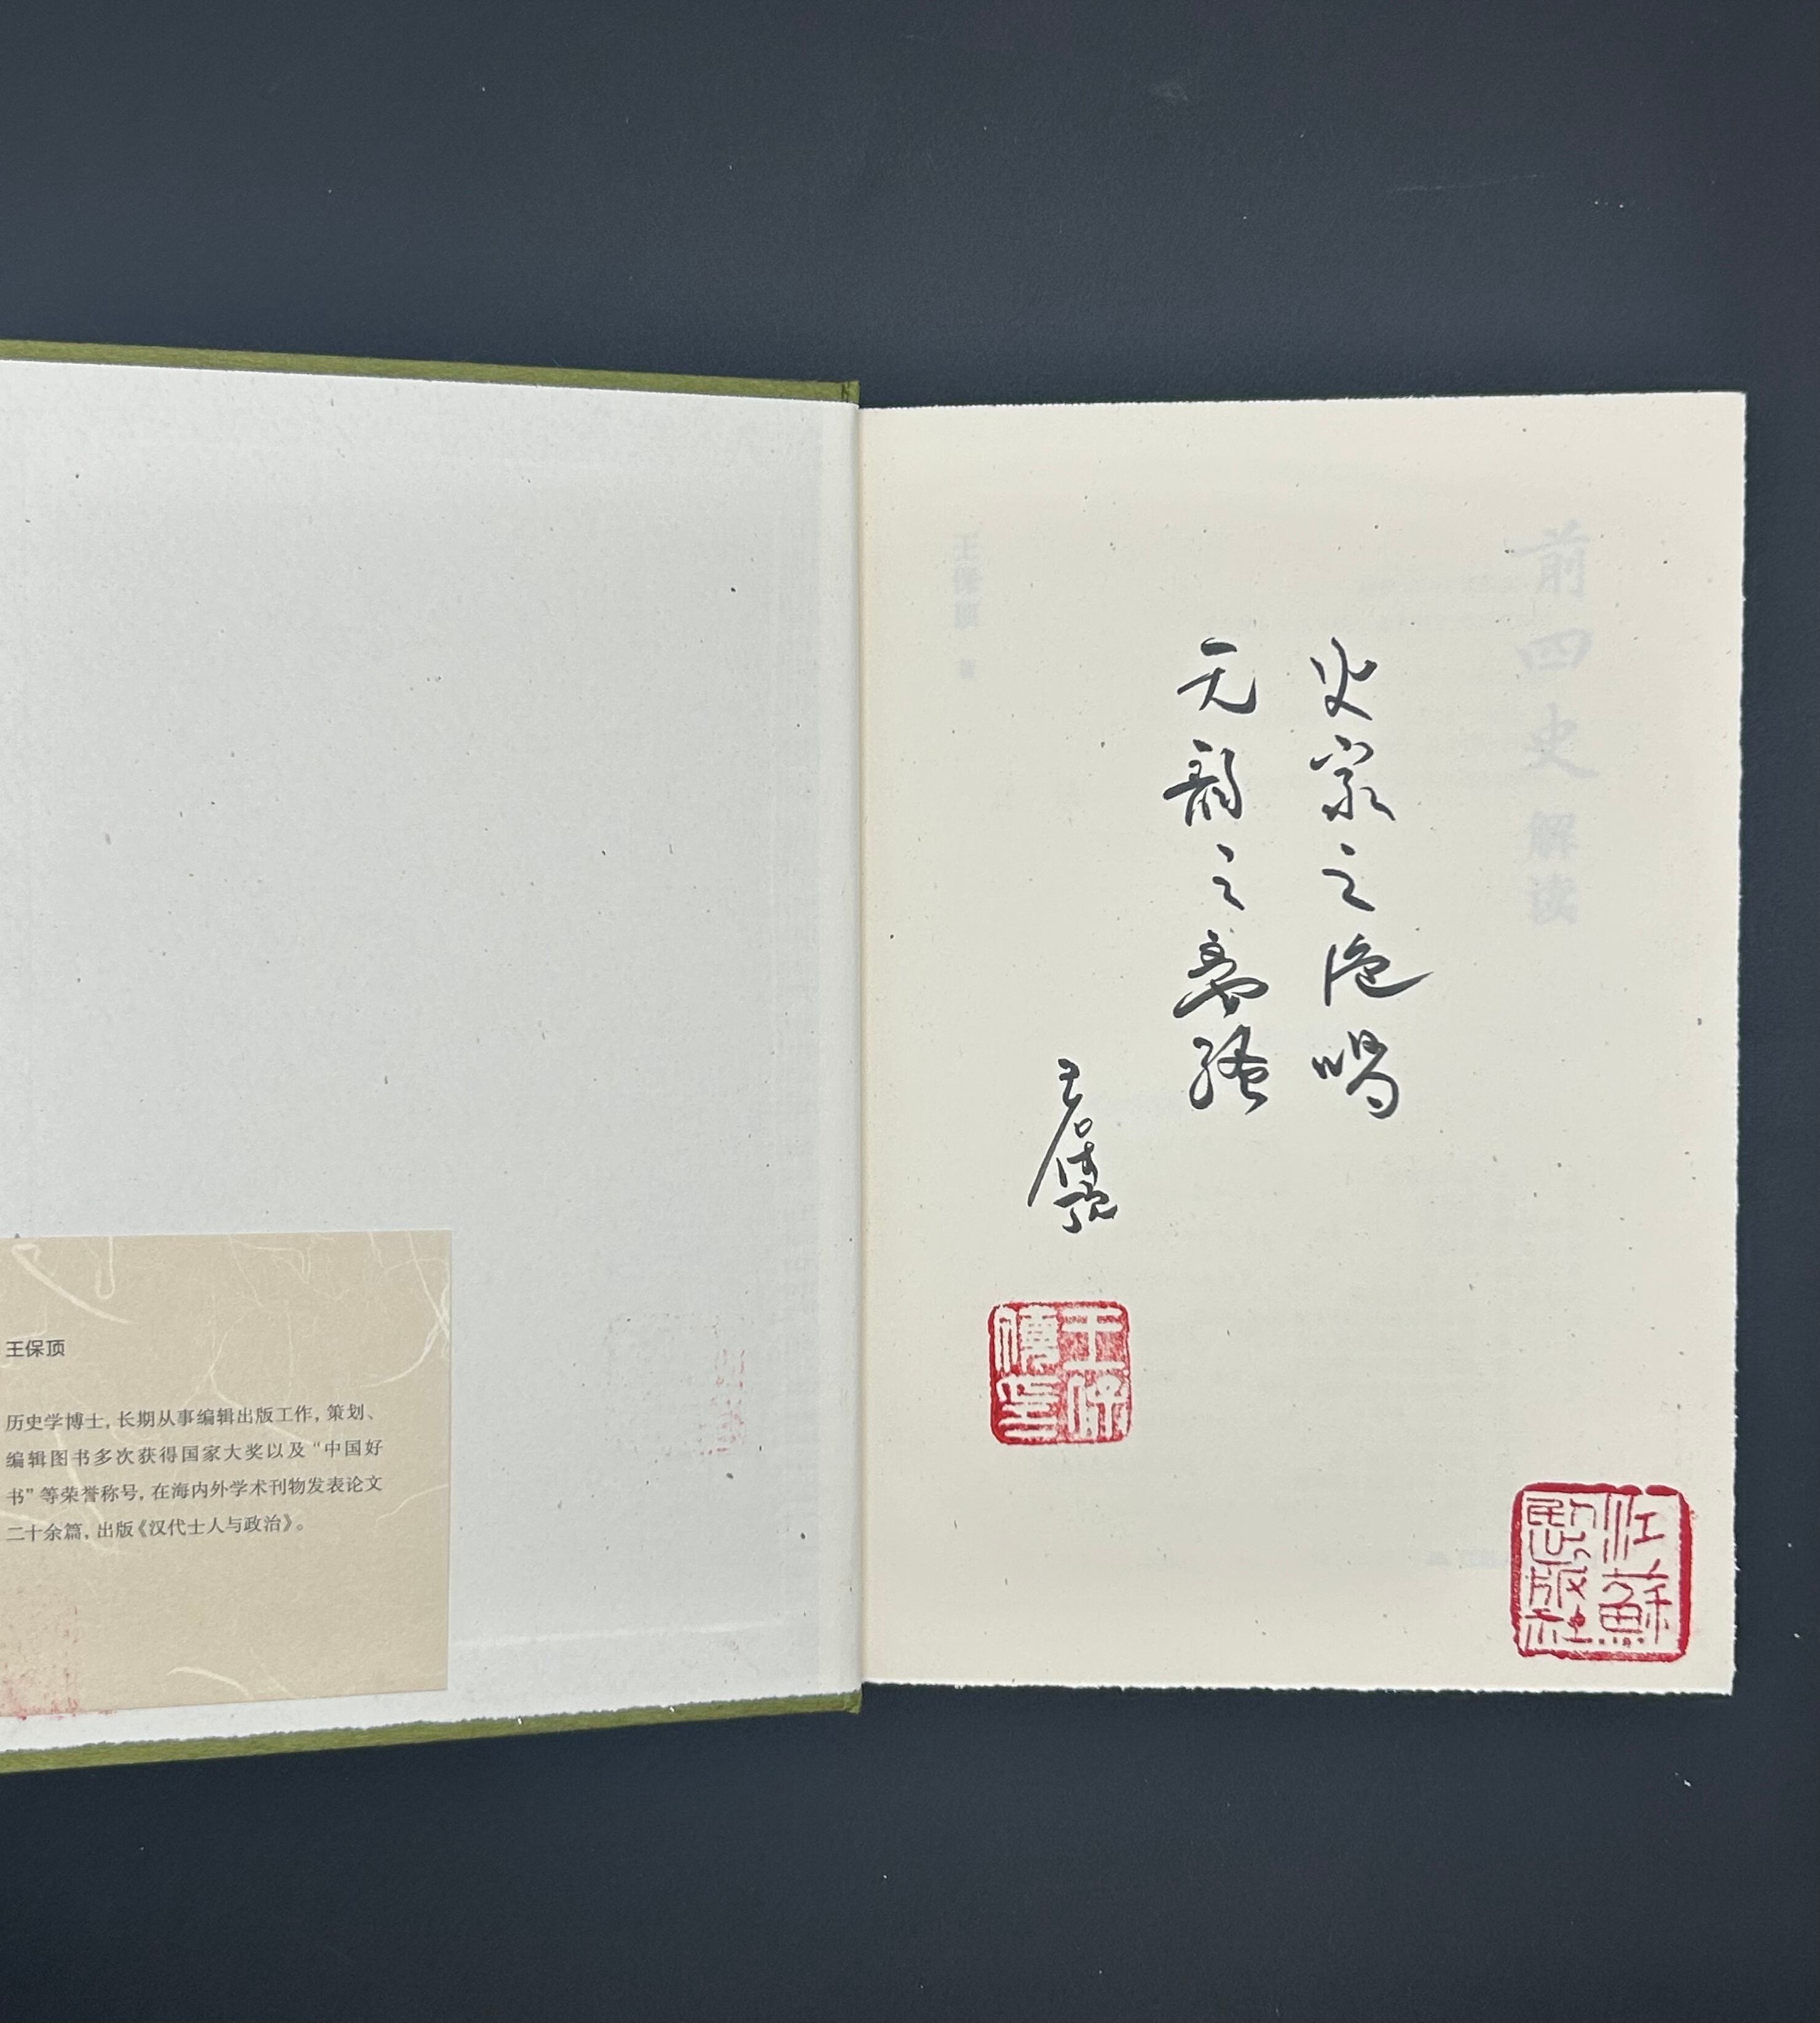 王保顶
历史学博士，长期从事编辑出版工作，策划、
编辑图书多次获得国家大奖以及“中国好
书”等荣誉称号，在海内外学术刊物发表论文
二十余篇，出版《汉代士人与政治》。
前四史解读
史家之绝唱
无韵之离骚
王保顶
王保顶 著
王保
頂印
江蘇
人民出版社